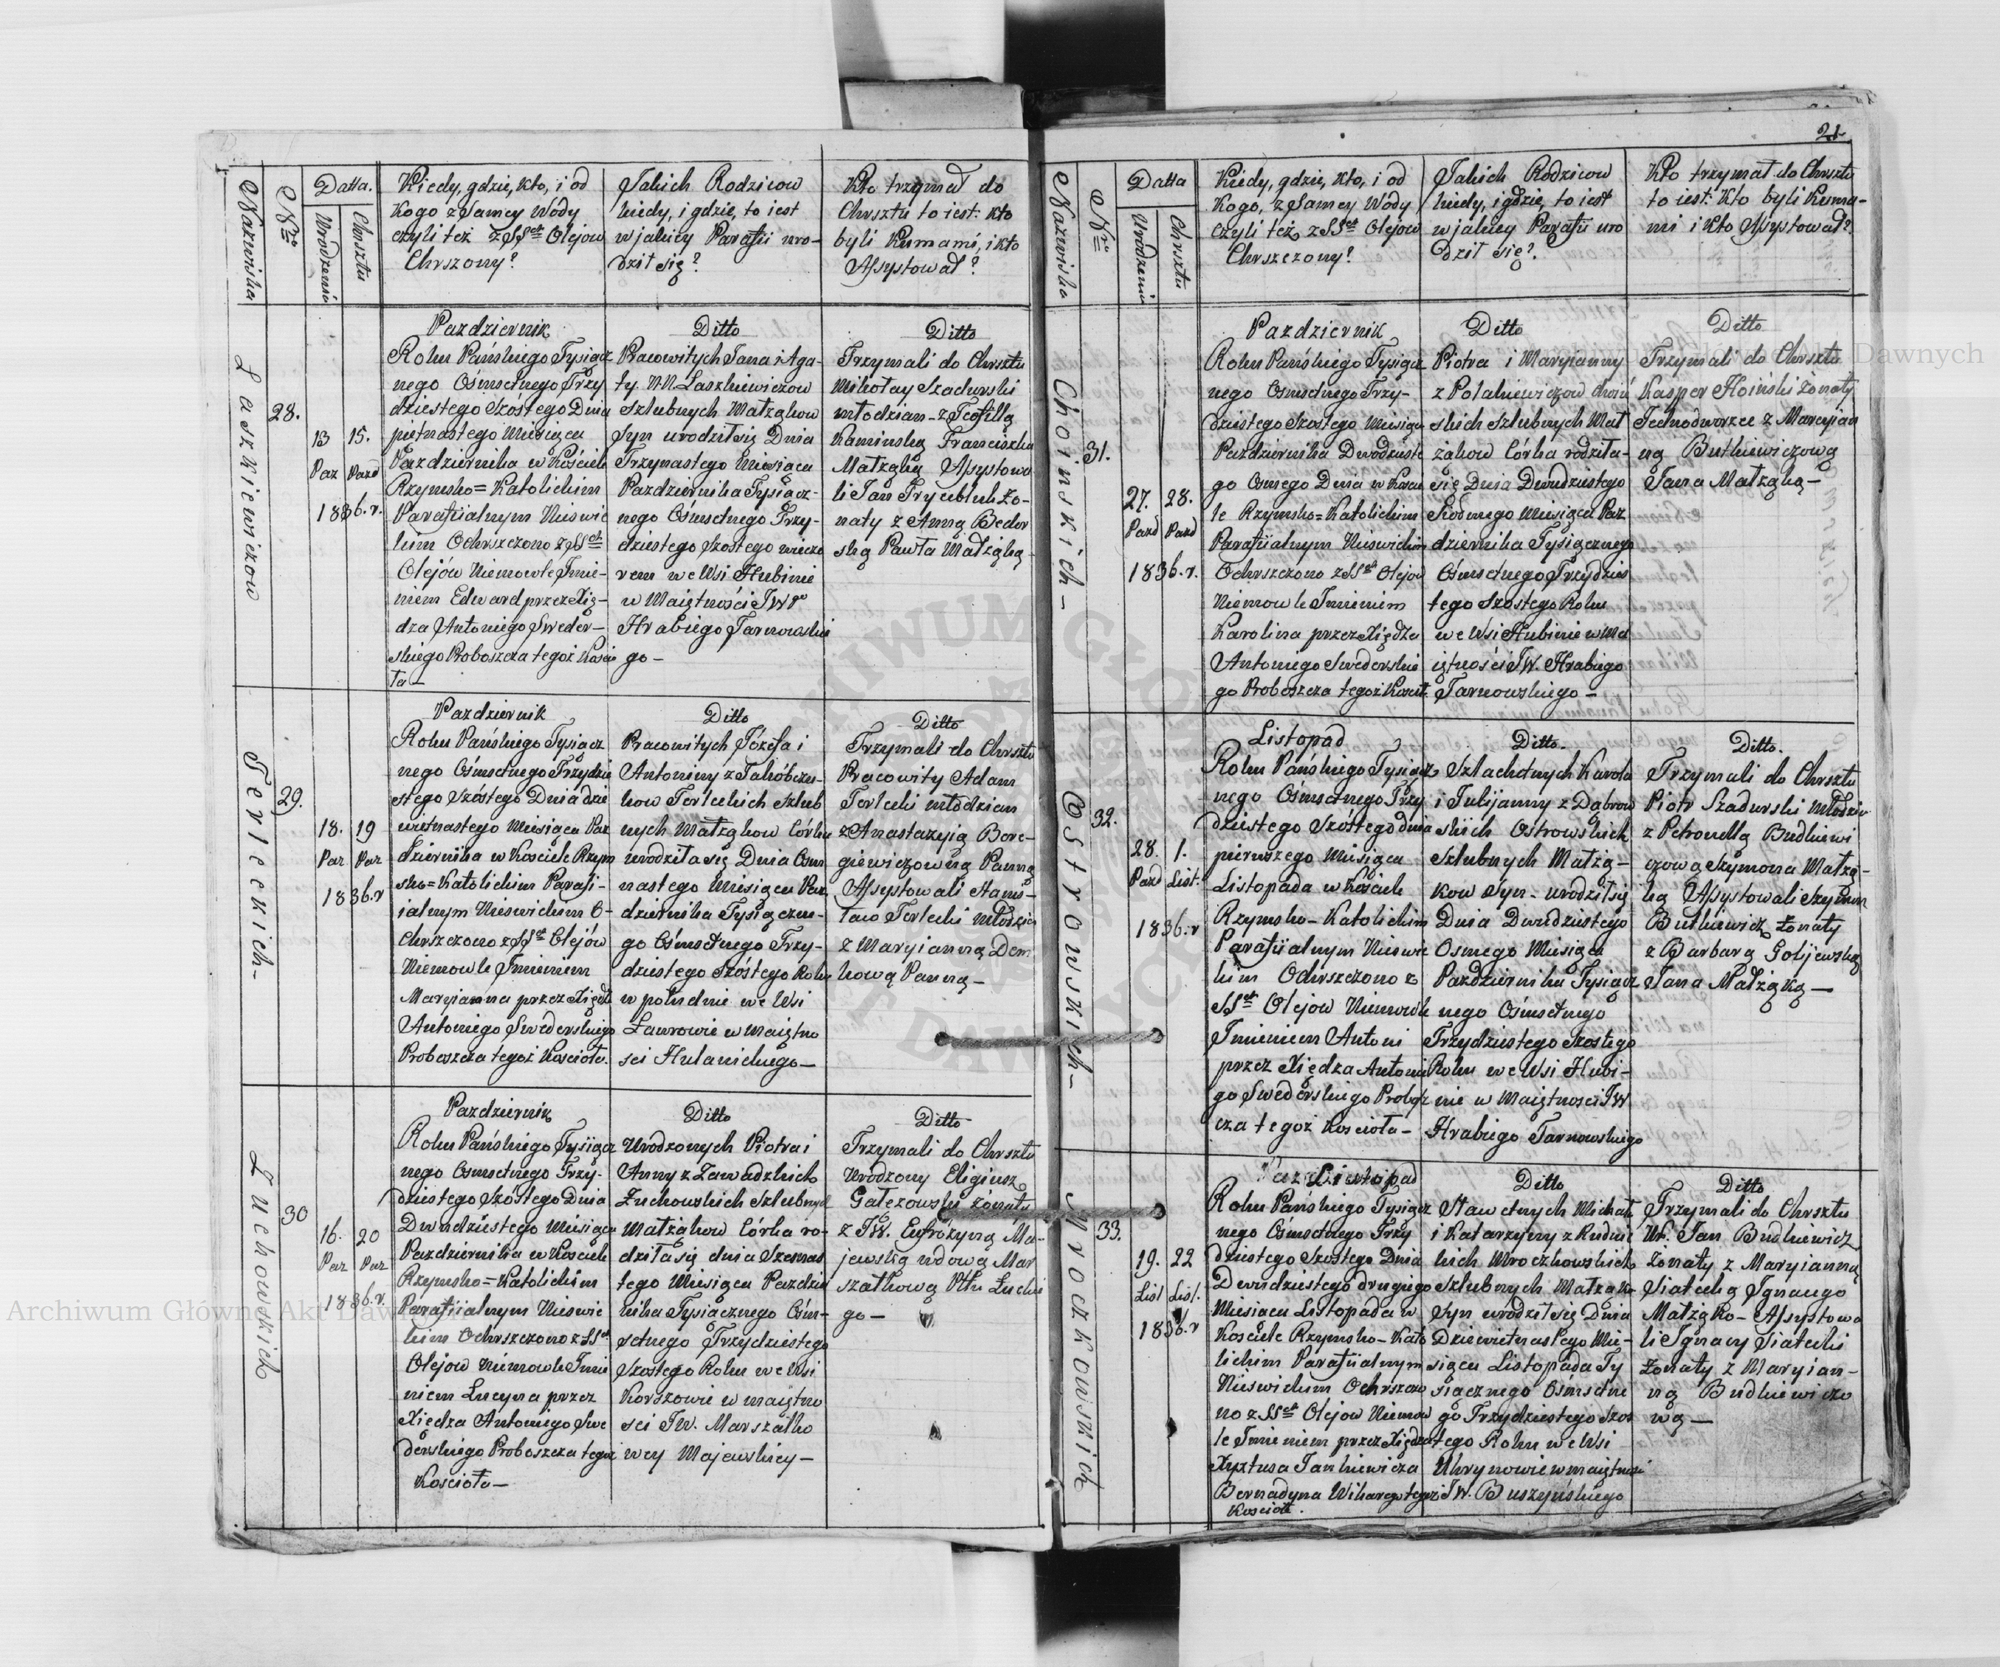 Nazwiska
Nro
Datta.
Urodzenia
Chrsztu
Kiedy, gdzie, kto, i od
Kogo z Samey Wody
czyli też z SSch Olejow
Chrszony?
Jakich Rodzicow
kiedy, i gdzie, to iest
w jakiey Parafii uro-
dził się?
Kto trzymał do
Chrsztu to iest: kto
byli Kumami, i kto
Assystował?
Laszkiewiczow
28.
13 15.
Paz Pazd
1836. r.
Pazdziernik
Roku Pańskiego Tysiącz
nego Ośmsetnego Trzy
dziestego Szóstego Dnia
piętnastego Miesiąca
Pazdziernika w Kościele
Rzymsko=Katolickim
Parafiialnym Nieświc
kim Ochrszczono z SSch
Olejów Niemowle Imie-
niem Edward przez Xię-
dza Antoniego Sweder-
skiego Proboszcza tegoż Kościo
ła-
Ditto
Pracowitych Jana i Aga-
ty N.N. Laszkiewiczow
Szlubnych Małżąkow
Syn urodził się Dnia
Trzynastego Miesiąca
Pazdziernika Tysiącz-
nego Ośmsetnego Trzy-
dziestego Szostego wieczo
rem we Wsi Hubinie
w Maiętności JWo
Hrabiego Tarnowskie
go-
Ditto
Trzymali do Chrsztu
Mikołay Szadurski
młodzian- z Teofillą
Kaminską Franciszka
Małżąką Assystowa
li Jan Trycubluk Żo-
naty z Anną Bedor
ską Pawła Małżąką-
Terleckich-
29.
18. 19
Paz Paz
1836. r
Pazdziernik
Roku Pańskiego Tysiącz
nego Ośmsetnego Trzydzie
stego Szóstego Dnia dzie
więtnastego Miesiąca Paz
dziernika w Kosciele Rzym
sko=Katolickim Parafi-
ialnym Nieswickim O-
chrszczono z SSch Olejów
Niemowle Imieniem
Maryianna przez Xiędz
Antoniego Swederskiego
Proboszcza tegoż Kościoła.
Ditto
Pracowitych Józefa i
Antoniny z Jakóbczu-
kow Terleckich Szlub
nych Małżąkow Córka
urodziła się Dnia Osm
nastego Miesiąca Paz
dziernika Tysiączne-
go Ośmsetnego Trzy-
dziestego Szóstego Roku
w południe we Wsi
Ławrowie w Maiętno
sci Hulanickiego-
Ditto
Trzymali do Chrsztu
Pracowity Adam
Terlecki młodzian
z Anastazyią Bere-
giewiczowną Panną
Assystowali Stanis-
ław Terlecki Młodzian
z Maryianną Dem
kową Panną-
Zuchowskich
30
16. 20
Paz Paz
1836. r.
Pazdziernik
Roku Pańskiego Tysiącz
nego Osmsetnego Trzy-
dziestego Szóstego Dnia
Dwudziestego Miesiąca
Pazdziernika w Kosciele
Rzymsko=Katolickim
Parafiialnym Nieswic
kim Ochrszczono z SSch
Olejow Niemowle Imie
niem Lucyna przez
Xiędza Antoniego Swe
derskiego Proboszcza tegoż
Kościoła-
Ditto
Urodzonych Piotra i
Anny z Zawadzkich
Zuchowskich Szlubnych
Małżąkow Córka ro-
dziła się dnia Szesnas
tego Miesiąca Pazdzie
nika Tysiącznego Ośm-
setnego Trzydziestego
Szostego Roku we Wsi
Korszowie w maiętno
sci JW. Marszałko
wey Majewskiey-
Ditto
Trzymali do Chrsztu
Urodzony Eligiusz
Gałęzowski Żonaty
z JW. Eufrozyną Ma-
jewską wdową Mar
szałkową Pttu Łuckie
go-
21.
Nazwiska
Nro
Datta
Urodzenia
Chrsztu
Kiedy, gdzie, kto, i od
Kogo, z Samey Wody
czyli też z SSch Olejow
Chrszczony?
Jakich Rodzicow
kiedy, i gdzie, to iest
w jakiey Parafii uro
dził się?
Kto trzymał do Chrsztu
to iest: kto byli Kuma-
mi i kto Assystował?
Choinskich-
31.
27. 28.
Pazd Pazd
1836. r.
Pazdziernik
Roku Pańskiego Tysiącz
nego Ośmsetnego Trzy-
dziestego Szostego Miesiąca
Pazdziernika Dwódzieste
go Osmego Dnia w Koscie
le Rzymsko=Katolickim
Parafiialnym Nieswickim
Ochrszczono z SSch Olejow
Niemowle Imieniem
Karolina przez Xiędza
Antoniego Swederskie
go Proboszcza tegoż Kościoł.
Ditto
Piotra i Maryianny
z Potakiewiczow Choiń
skich Szlubnych Mał
żąkow Córka rodziła-
się Dnia Dwudziestego
Siodmego Miesiąca Paz
dziernika Tysiącznego
Osmsetnego Trzydzies
tego Szostego Roku
we Wsi Hubinie w Ma
iętności JW. Hrabiego
Tarnowskiego-
Ditto
Trzymali do Chrsztu
Kasper Hoiński Żonaty
Jednodworzec z Maryian
ną Butkiewiczową
Jana Małżąką-
Ostrowskich-
32.
28. 1.
Pazd List.
1836. r
Listopad
Roku Pańskiego Tysiącz
nego Ośmsetnego Trzy
dziestego Szóstego dnia
pierwszego Miesiąca
Listopada w Kościele
Rzymsko-Katolickim
Parafiialnym Nieswic
kim Ochrszczono z
SSch Olejow Niemowle
Imieniem Antoni
przez Xiędza Antonie
go Swederskiego Probosz
cza tegoż Kościoła-
Ditto.
Szlachetnych Karola
i Julijanny z Dąbrow
skich Ostrowskich
Szlubnych Małżą-
kow Syn- urodził się
Dnia Dwudziestego
Osmego Miesiąca
Pazdziernika Tysiącz
nego Ośmsetnego
Trzydziestego Szostego
Roku we Wsi Hubi-
nie w Maiętnosci JW
Hrabiego Tarnowskiego
Ditto.
Trzymali do Chrsztu
Piotr Szadurski Młodzian
z Petronellą Budkiewi
czową Szymona Małżą-
ką Assystowali Szymon
Butkiewicz Żonaty
z Barbarą Golijewską
Jana Małżąką-
Mroczkowskich
33.
19. 22
List List.
1836. r
Listopad
Roku Pańskiego Tysiącz
nego Ośmsetnego Trzy
dziestego Szostego Dnia
Dwudziestego drugiego
Miesiąca Listopada w
Kosciele Rzymsko-Kato
lickim Parafiialnym
Nieswickim Ochrszczo
no z SSch Olejow Niemow
le Imieniem przez Xiędza
Xyxtusa Jankiewicza
Bernadyna Wikarego tegoż
Kościoła.
Ditto
Sławetnych Michała
i Katarzyny z Rudnic
kich Mroczkowskich
Szlubnych Małżąkow
Syn urodził się Dnia
Dziewiętnastego Mie-
siąca Listopada Ty
siącznego Ośmsetne
go Trzydziestego Szos
tego Roku we Wsi
Uhrynowie w maiętności
JW. Buszyńskiego
Ditto
Trzymali do Chrsztu
Ur. Jan Budkiewicz
Żonaty z Maryianną
Siatecką Ignacego
Małżąko- Assystowa
li Ignacy Siatecki
Żonaty z Maryian-
ną Budkiewiczo
wą-
Archiwum Główne Akt Dawnych